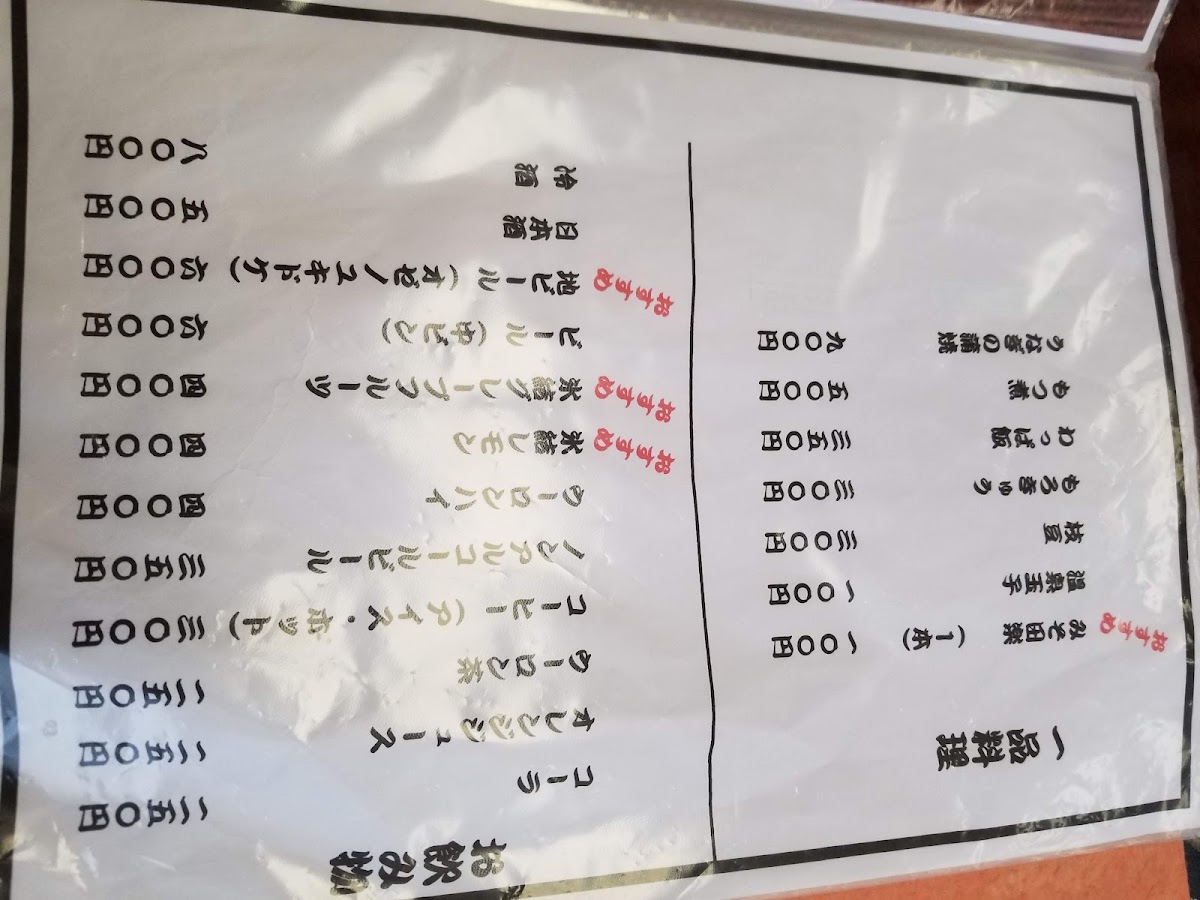 一品料理
おすすめ みそ田楽 (1本) 一〇〇円
温泉玉子 一〇〇円
枝豆 三〇〇円
もろきゅう 三〇〇円
わっぱ飯 三五〇円
もつ煮 五〇〇円
うなぎの蒲焼 九〇〇円
お飲み物
コーラ 二五〇円
オレンジジュース 二五〇円
ウーロン茶 二五〇円
コーヒー(アイス・ホット) 三〇〇円
ノンアルコールビール 三五〇円
ウーロンハイ 四〇〇円
おすすめ 氷結レモン 四〇〇円
おすすめ 氷結グレープフルーツ 四〇〇円
ビール(中ビン) 六〇〇円
おすすめ 地ビール(オゼノユキドケ) 六〇〇円
日本酒 五〇〇円
冷酒 八〇〇円